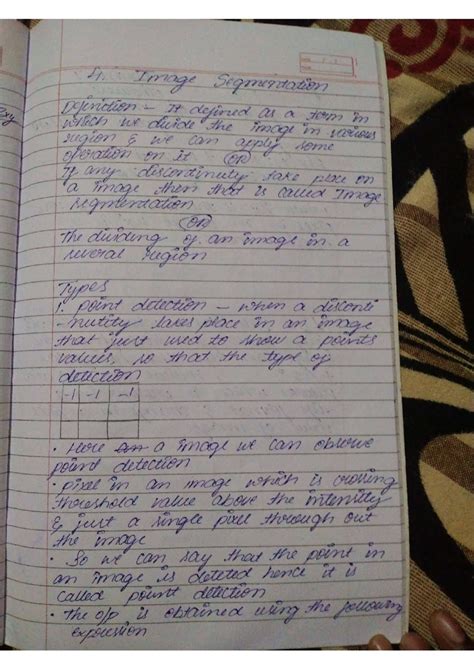 4. Image Segmentation
Definition - It defined as a term in
which we divide the image in various
region & we can apply some
operation on it OR
If any discontinuty take place on
a image then that is called Image
segmentation
OR
The dividing of an image in a
several region
Types
1. point detection - when a disconti
-nutity takes place in an image
that just used to show a points
values, so that the type of
detection
-1 -1 -1
· Here a image we can observe
point detection
· pixel in an image which is crossing
threshold value above the intensity
& just a single pixel through out
the image
· So we can say that the point in
an image is deteted hence it is
called point detection
· The o/p is obtained using the following
expression